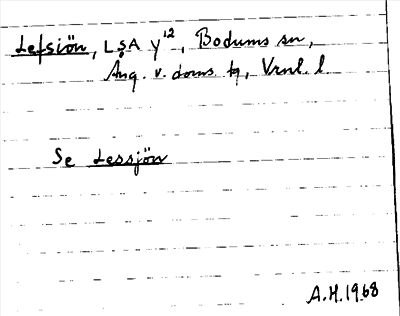 Lefsiön, LSÅ y¹², Bodums sn,
Ång. v. doms. tg, Vrnl. l.
Se Lessjön
A.H. 1968